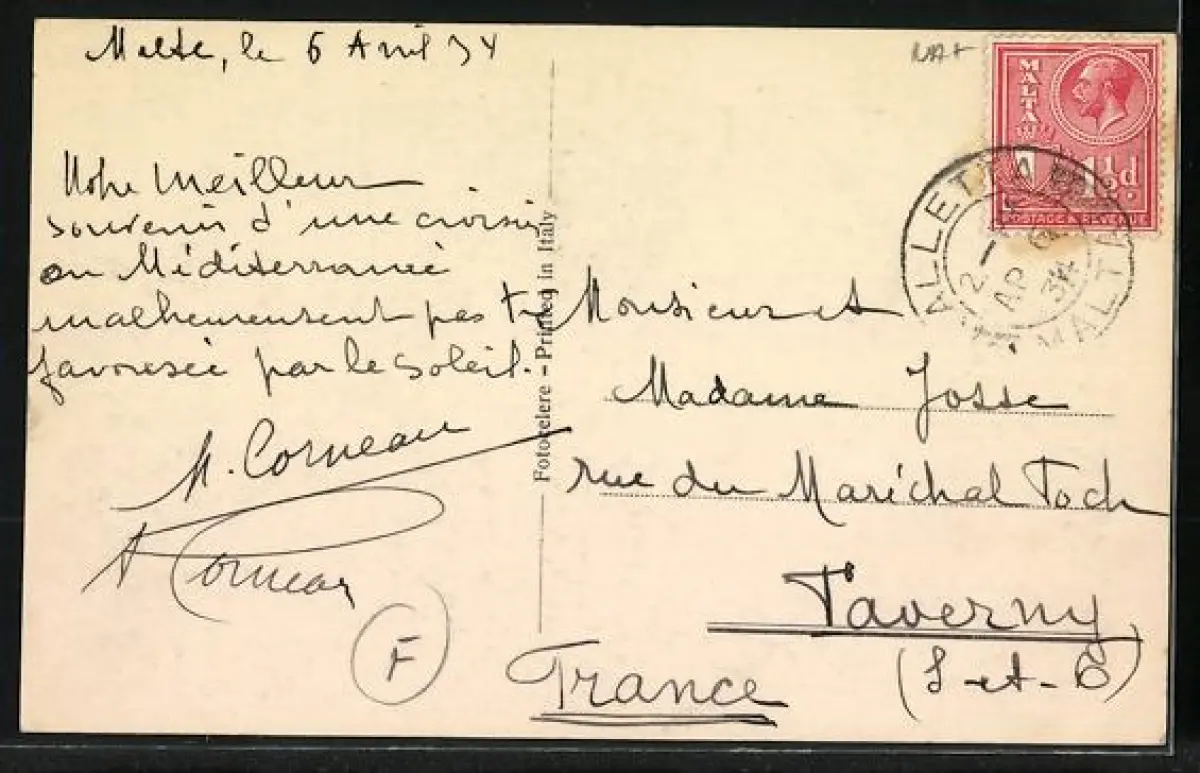 Malte, le 6 Avril 34
Notre meilleur
souvenir d'une croisi
en Méditerranée
malheureusement pas
favorisée par le soleil.
M. Corneau
A Corneau
F
Fotocelere - Printed in Italy
MALTA
1½d
POSTAGE & REVENUE
VALLETTA
MALTA
2 -
AP 6
34
Monsieur et
Madame Josse
rue du Maréchal Foch
Taverny
(S-et-O)
France